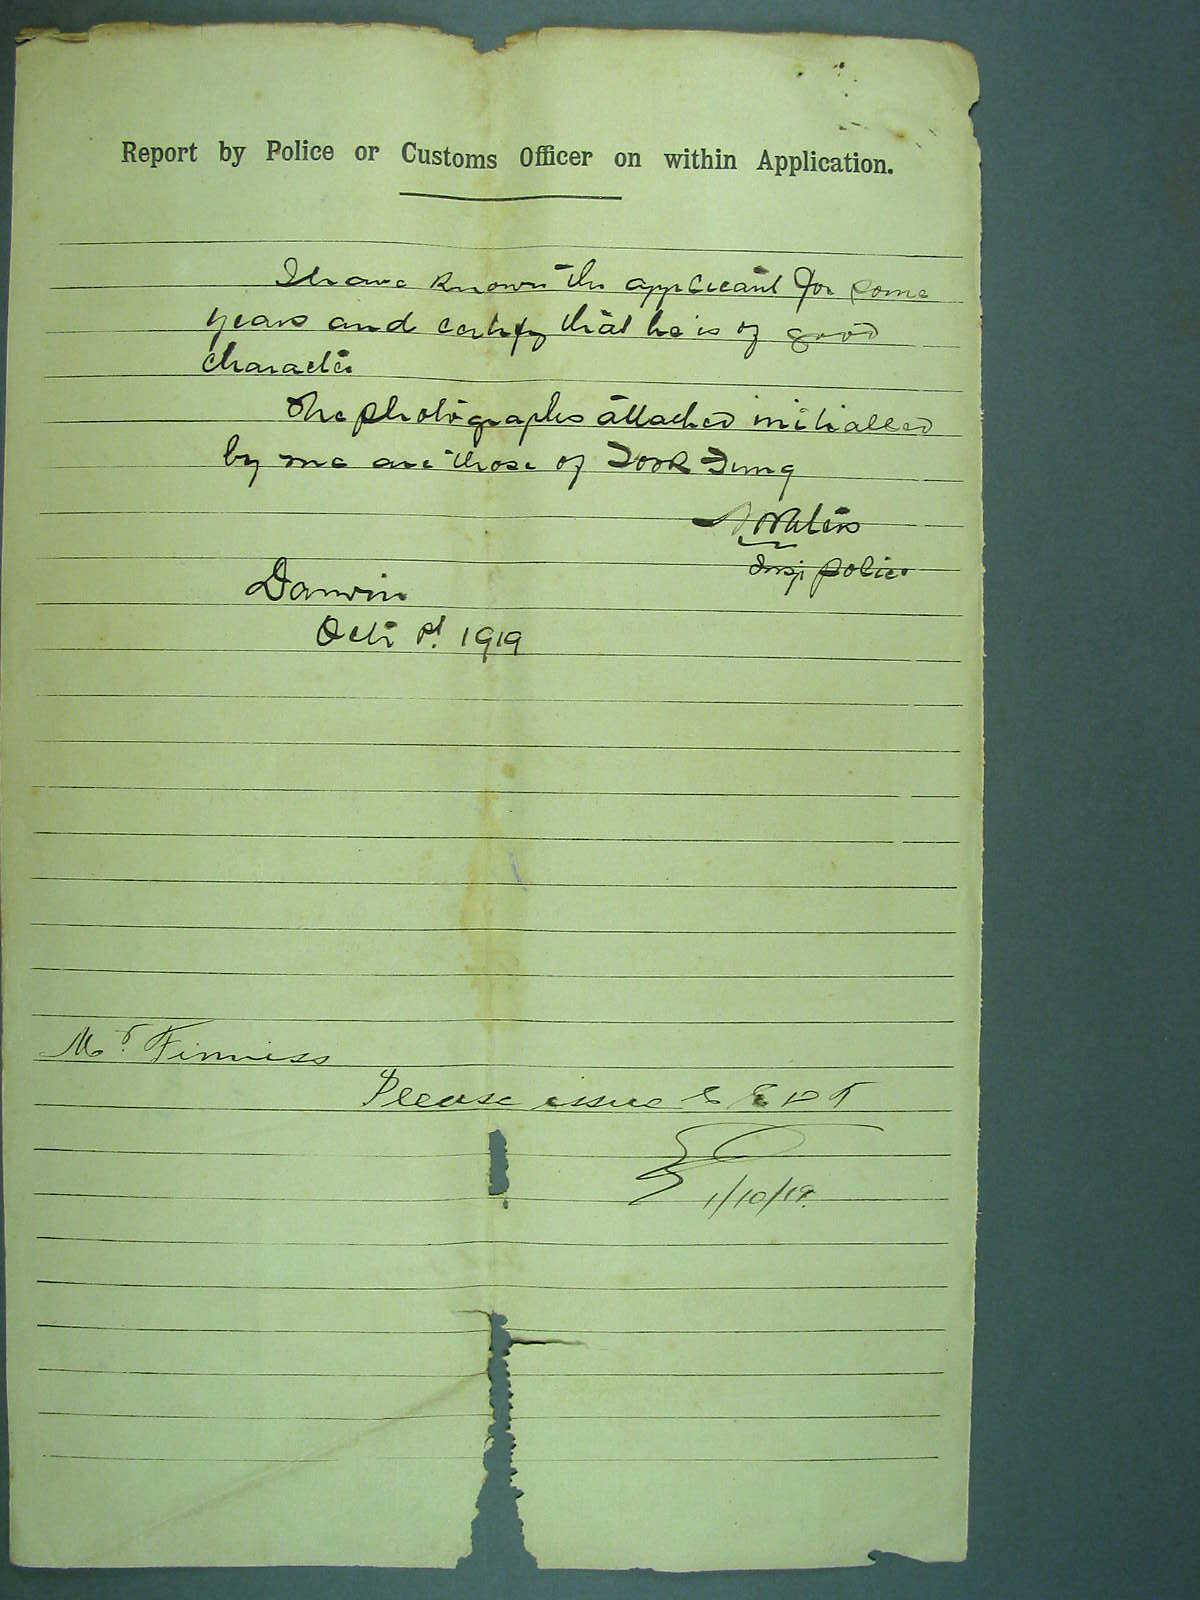 Report by Police or Customs Officer on within Application.
I have known the applicant for some
years and certify that he is of good
character
The photographs attached initialled
by me are those of Fook Fung
Waters
Insp Police
Darwin
Oct 1st 1919
Mr. Finniss
Please issue C E D T
1/10/19.